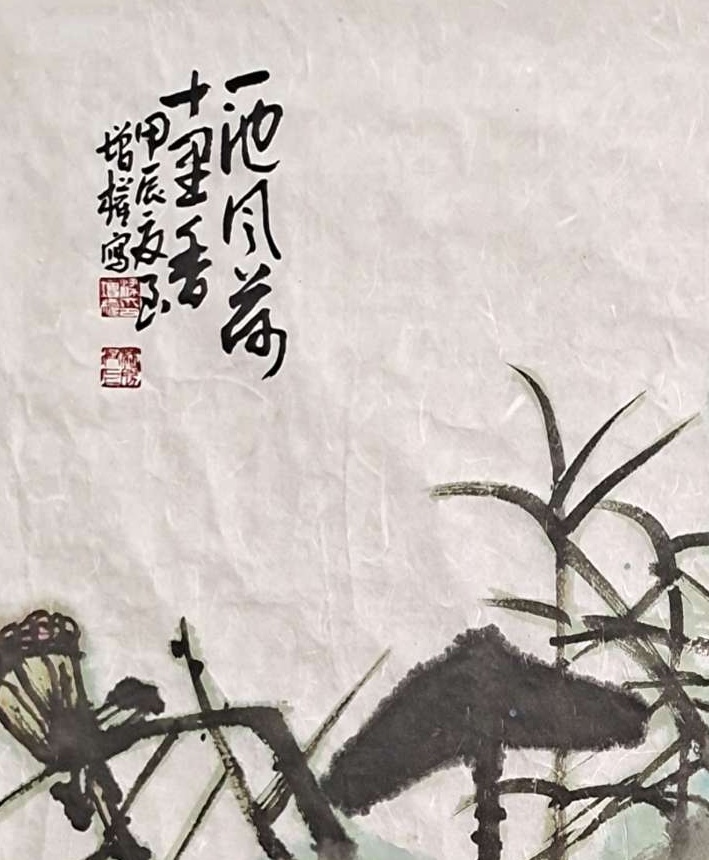 一池风荷
十里香
甲辰夏月
增权写